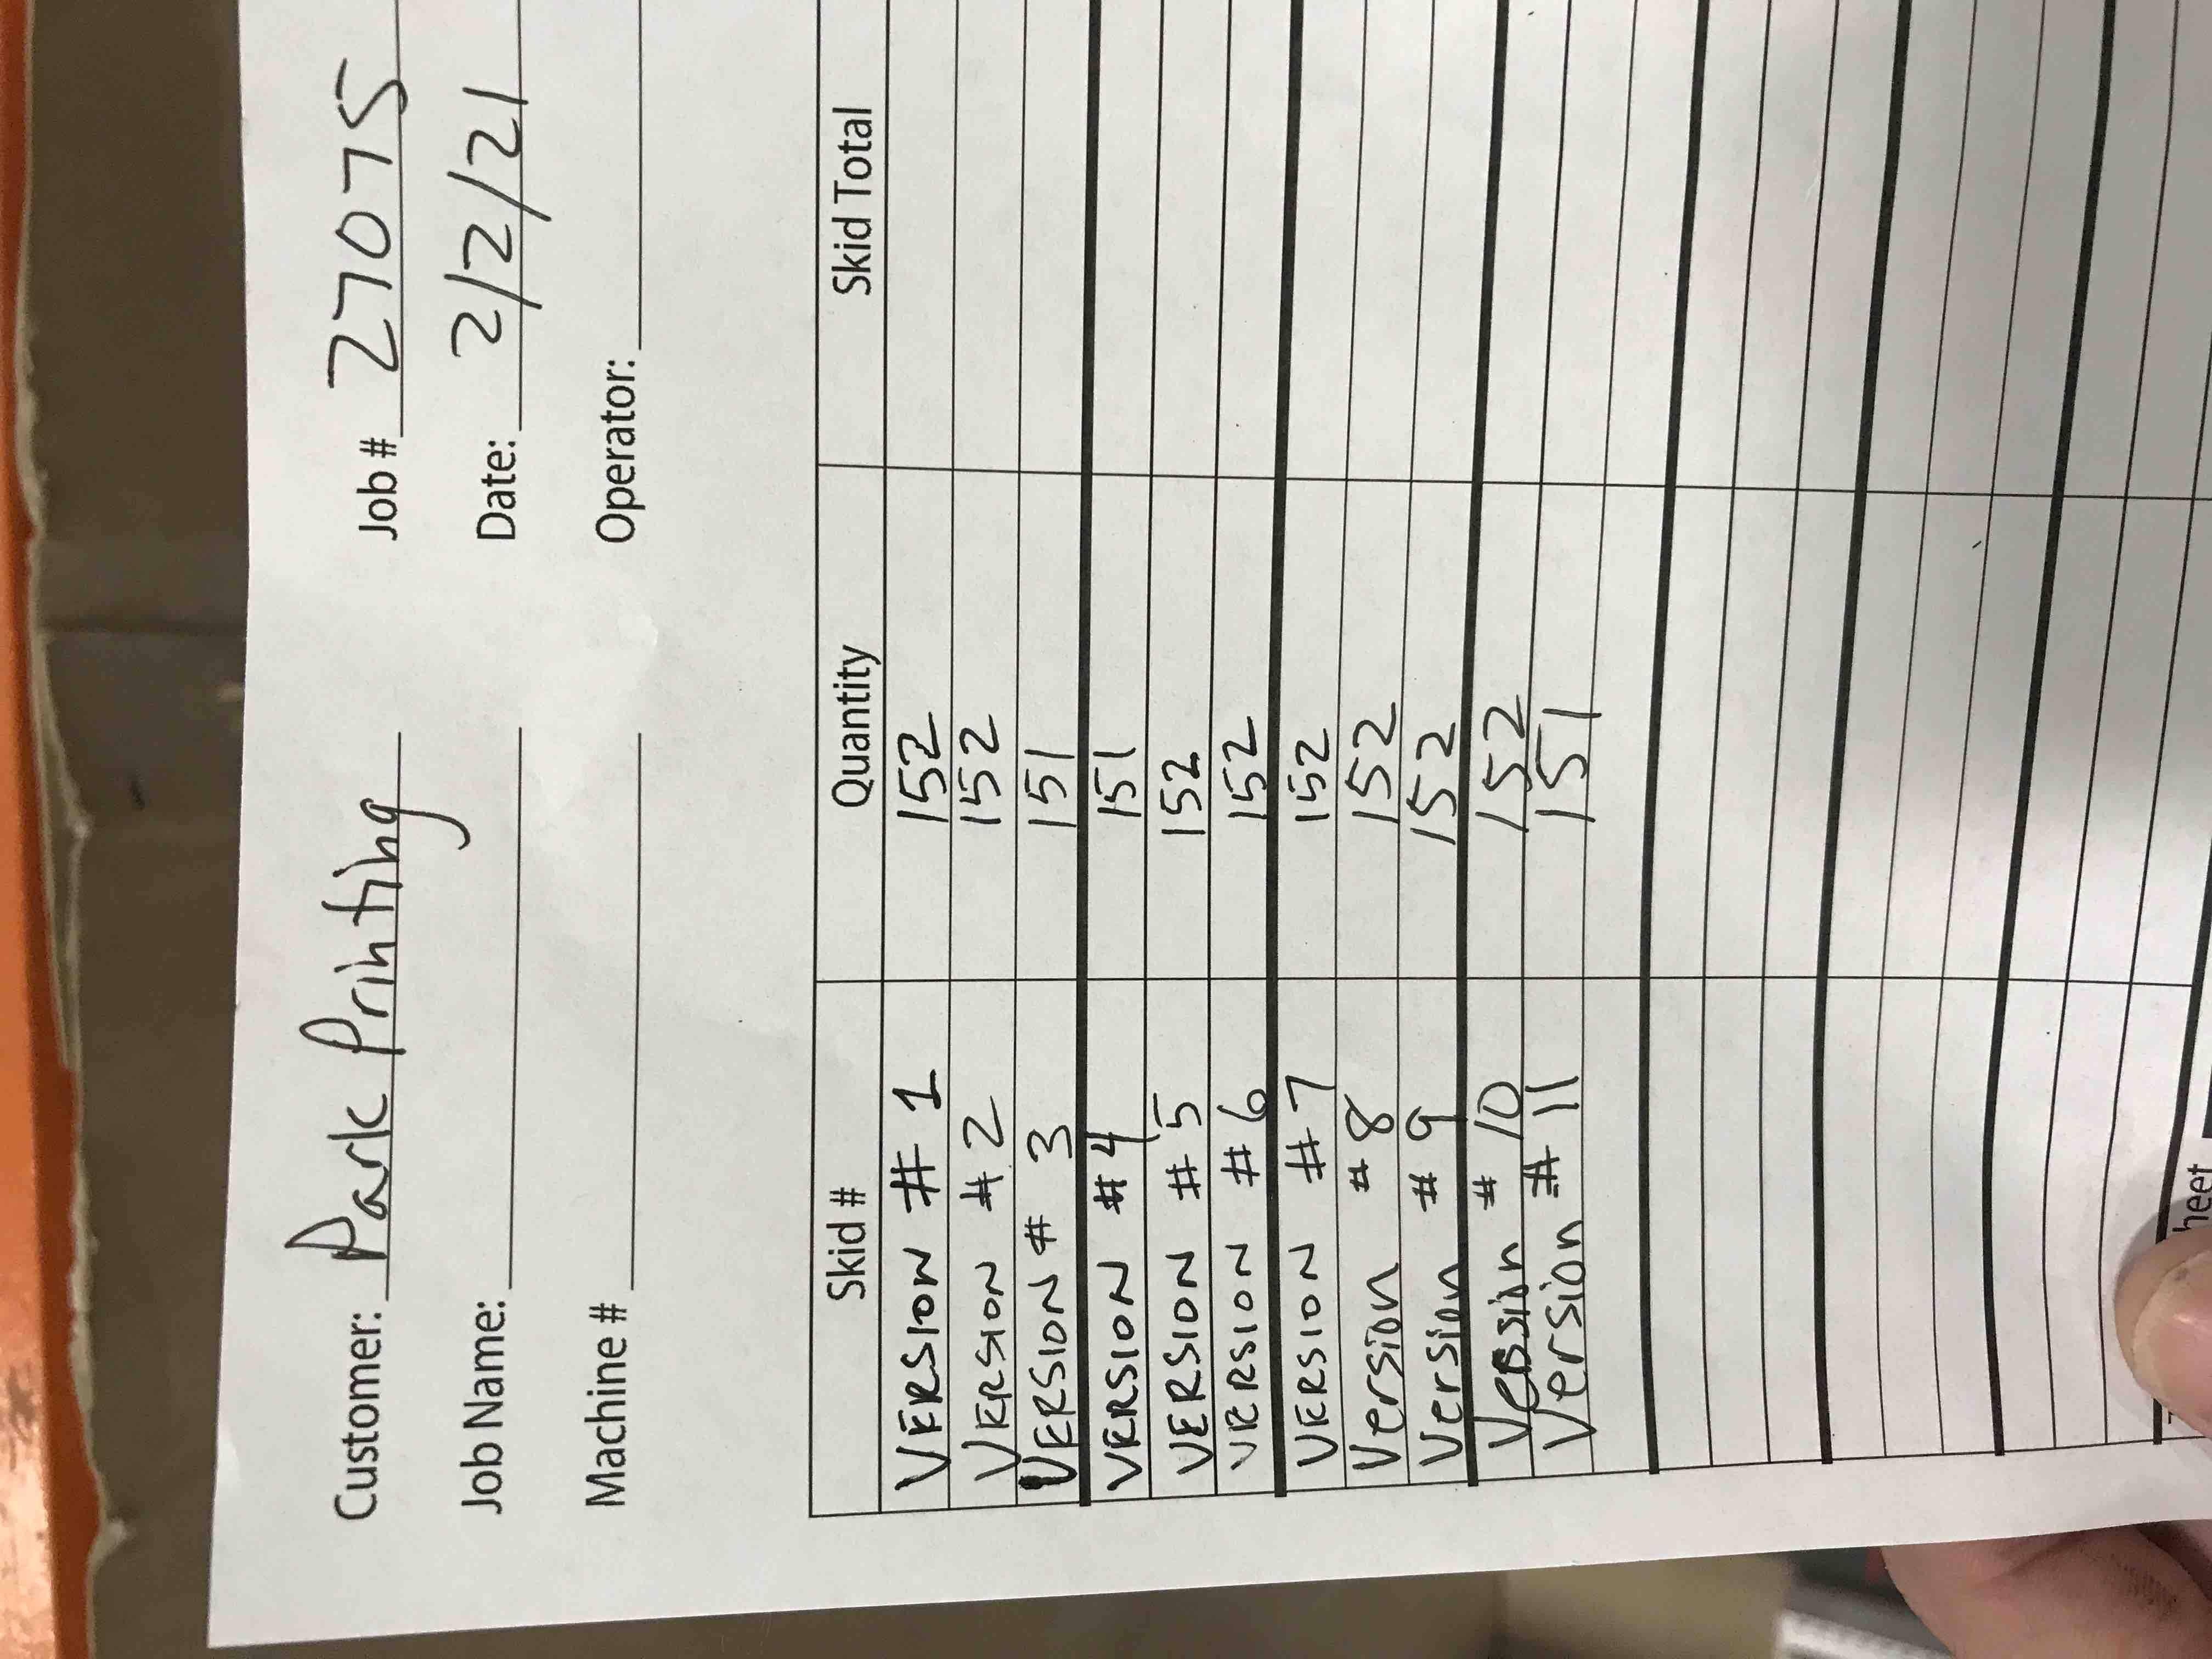 Customer: Park Printing Job # 27075
Job Name: Date: 2/2/21
Machine # Operator:
Skid # Quantity Skid Total
VERSION # 1 152
VERSION # 2 152
VERSION # 3 151
VERSION # 4 151
VERSION # 5 152
VERSION # 6 152
VERSION # 7 152
Version # 8 152
Version # 9 152
Version # 10 152
Version # 11 151
heet